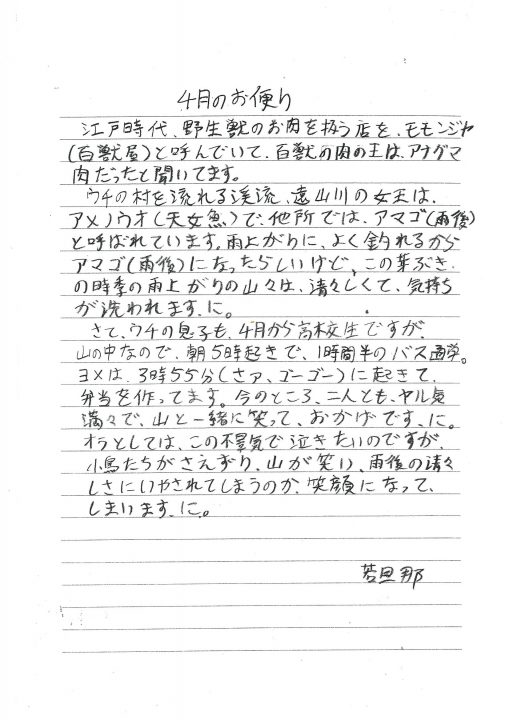 4月のお便り
江戸時代、野生獣のお肉を扱う店を、モモンジヤ
(百獣屋)と呼んでいて、百獣の肉の王は、アナグマ
肉だったと聞いてます。
ウチの村を流れる渓流、遠山川の女王は、
アメノウオ(天女魚)で、他所では、アマゴ(雨後)
と呼ばれています。雨上がりに、よく釣れるから
アマゴ(雨後)になったらしいけど、この芽ぶき
の時季の雨上がりの山々は、清々しくて、気持ち
が洗われます、に。
さて、ウチの息子も、4月から高校生ですが、
山の中なので、朝5時起きで、1時間半のバス通学。
ヨメは、3時55分(さァ、ゴーゴー)に起きて、
弁当を作ってます。今のところ、二人とも、ヤル気
満々で、山と一緒に笑って、おかげです、に。
オラとしては、この不景気で泣きたいのですが、
小鳥たちがさえずり、山が笑い、雨後の清々
しさにいやされてしまうのか、笑顔になって、
しまいます、に。
若旦那